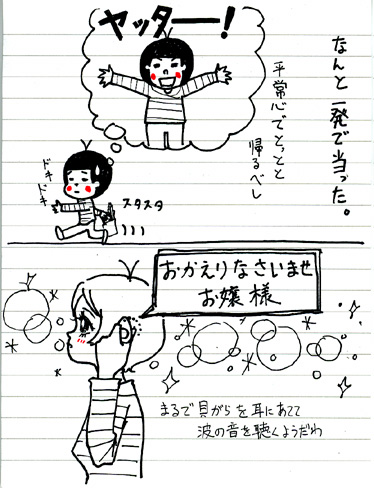 なんと一発で当った。
ヤッター!
平常心でとっとと
帰るべし
ドキドキ
スタスタ
おかえりなさいませ
お嬢様
まるで貝がらを耳にあてて
波の音を聴くようだわ